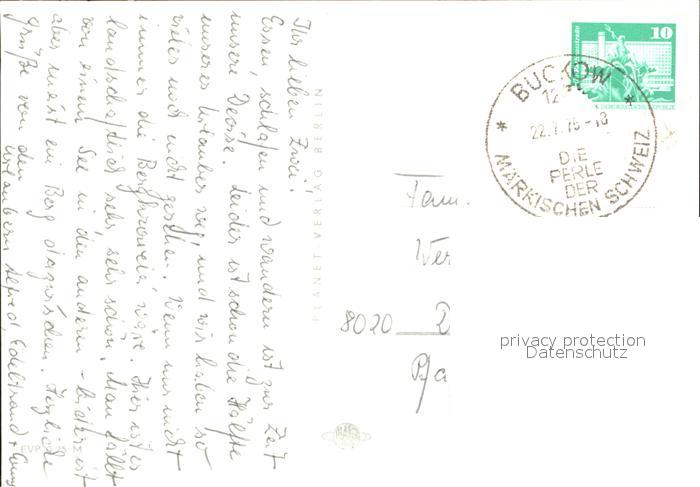 Ihr lieben Zwei!
Essen, schlafen und wandern ist zur Zeit
unsere Devise. Leider ist schon die Hälfte
unseres Urlaubes weg, und wir haben so
vieles noch nicht gesehen. Wenn nur nicht
immer die Bergkraxelei wäre. Hier ist es
landschaftlich sehr, sehr schön. Man fällt
von einem See in den anderen -
aber meist ein Berg dazwischen. Herzliche
Grüße von den
Urlaubern Alfred, Edeltraud +
PLANET VERLAG BERLIN
EVP
10
BUCKOW
12
22.7.75-18
DIE
PERLE
DER
MÄRKISCHEN SCHWEIZ
Fam.
Wer
8020 D
Pfa
privacy protection
Datenschutz